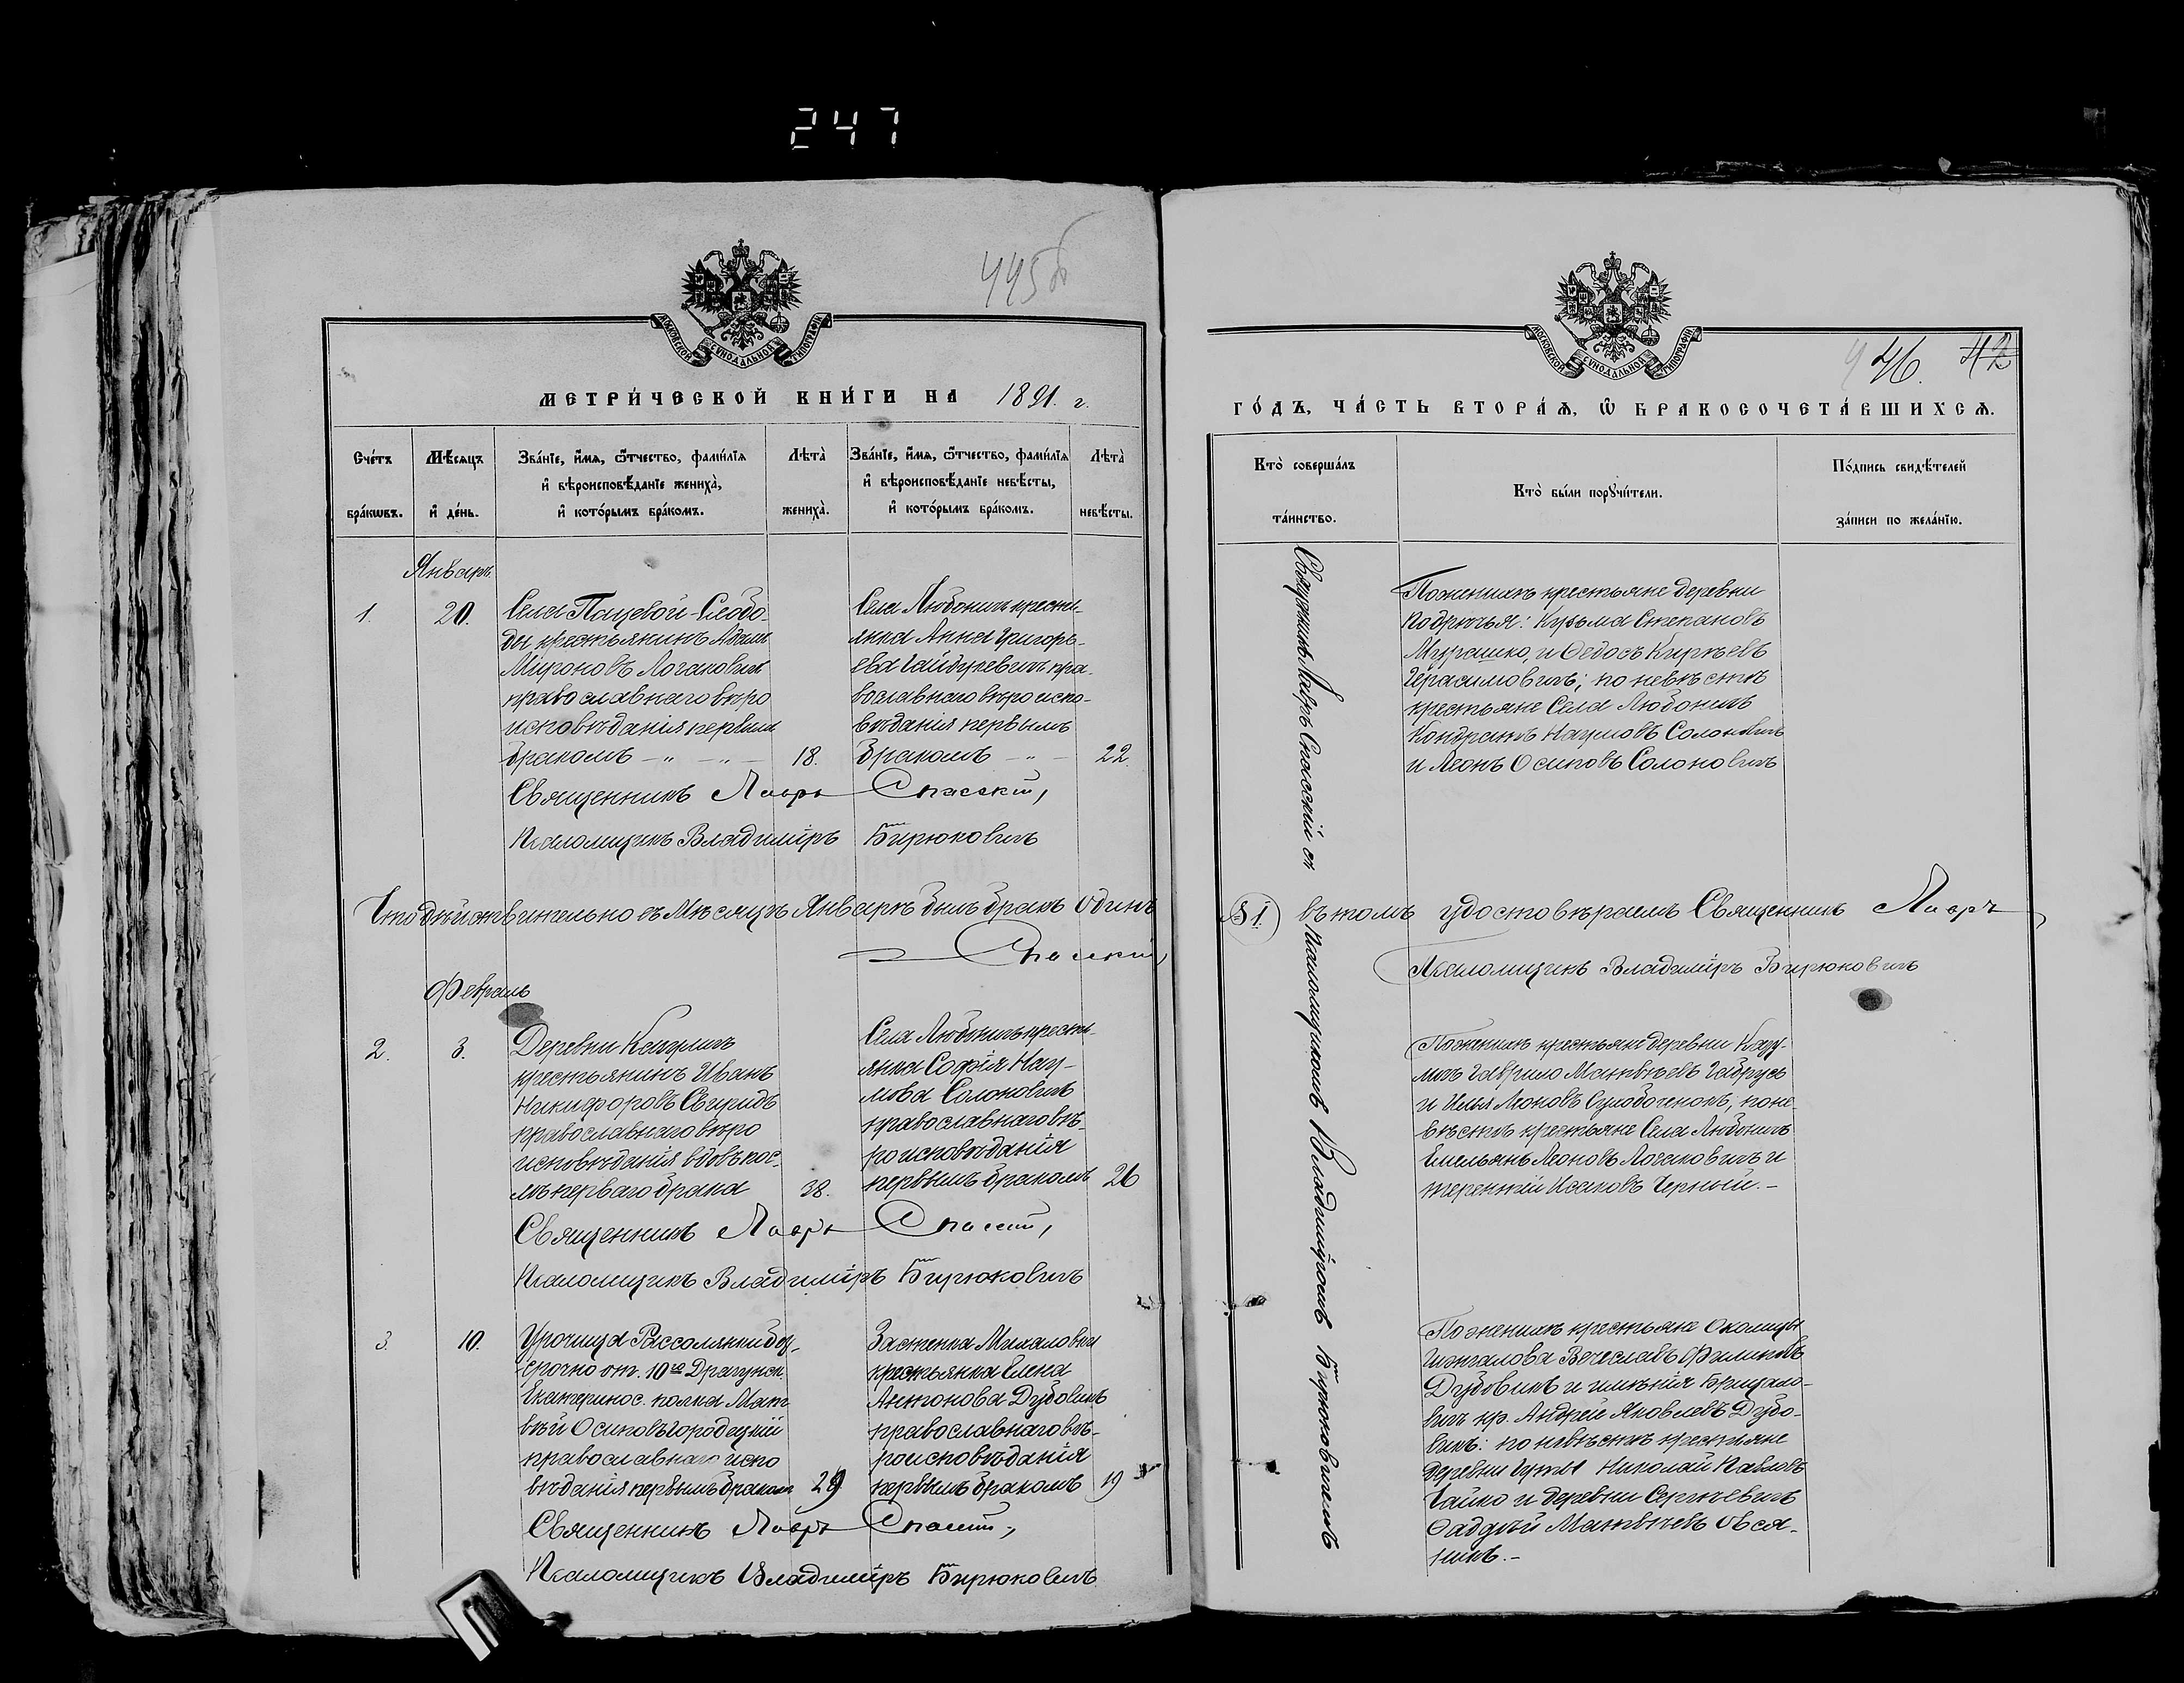 247
445б
МОСКОВСКОЙ СУНОДАЛЬНОЙ ТИПОГРАФІИ
МЕТРИ́ЧЕСКОЙ КНИ́ГИ НА 1891. г.
Сче́тъ бра́кѡвъ.
Мѣ́сяцъ и҆ де́нь.
Зва́нїе, и҆́мѧ, ѻ҆́тчество, фами́лїѧ и҆ вѣроисповѣ́данїе жениха̀, и҆ кото́рымъ бра́комъ.
Лѣта̀ жениха̀.
Зва́нїе, и҆́мѧ, ѻ҆́тчество, фами́лїѧ и҆ вѣроисповѣ́данїе невѣ́сты, и҆ кото́рымъ бра́комъ.
Лѣта̀ невѣ́сты.
Январь
1.
20.
Села Пацевой-Слобо-
ды крестьянинъ Адамъ
Мироновъ Логаковичъ
православнаго вѣро
исповѣданія первымъ
бракомъ — „ — „ —
18.
Села Любоничъ крестьянка
Анна Григорь-
ева Гайдукевичъ пра-
вославнаго вѣроиспо-
вѣданія первымъ
бракомъ — „ —
22.
Священникъ Лавръ Спасскій,
Псаломщикъ Владиміръ Бирюковичъ
Что дѣйствительно въ Мѣсяцѣ Январѣ былъ бракъ одинъ
Спасскій,
Февраль
2.
3.
Деревни Качуличъ
крестьянинъ Иванъ
Никифоровъ Свиридъ
православнаго вѣро
исповѣданія вдовъ пос-
лѣ перваго брака
38.
Села Любоничъ крестьянка
Софія Нау-
мова Солоновичъ
православнаго вѣ-
роисповѣданія
первымъ бракомъ
26
Священникъ Лавръ Спасскій,
Псаломщикъ Владиміръ Бирюковичъ
3.
10.
Урочища Рассолянки без-
срочно от. 10го Драгунск.
Екатеринос. полка Мат
вѣй Осиповъ Городецкій
православнаго испо
вѣданія первымъ бракомъ
29
Застенка Михалова
крестьянка Елена
Антонова Дубовикъ
православнаго вѣ-
роисповѣданія
первымъ бракомъ
19
Священникъ Лавръ Спасскій,
Псаломщикъ Владиміръ Бирюковичъ
МОСКОВСКОЙ СУНОДАЛЬНОЙ ТИПОГРАФІИ
446. 42
ГО́ДЪ, ЧА́СТЬ ВТОРА́Ѧ, Ѽ БРАКОСОЧЕТА́ВШИХСѦ.
Кто̀ соверша́лъ та́инство.
Кто̀ бы́ли порꙋчи́тели.
По́дпись свидѣ́телей за́писи по жела́нїю.
Священникъ Лавръ Спасскій съ псаломщикомъ Владиміромъ Бирюковичемъ
По женихѣ крестьяне деревни
Подрѣчья: Кузьма Степановъ
Мурашко, и Ѳедосъ Кирѣевъ
Герасимовичъ; по невѣстѣ
крестьяне Села Любоничъ
Кондратъ Наумовъ Солоновичъ
и Леонъ Осиповъ Солоновичъ
§ 1) въ томъ удостовѣряемъ Священникъ Лавръ
Псаломщикъ Владиміръ Бирюковичъ
По женихѣ крестьяне деревни Качу-
личъ Гаврило Матвѣевъ Габрусь
и Илья Леоновъ Сулобоченокъ, по не-
вѣстѣ крестьяне Села Любоничъ
Емельянъ Леоновъ Логаковичъ и
Терентій Исаковъ Черный.-
По женихѣ крестьяне Околицы
Шонгалова Вечеславъ Филиповъ
Дубовикъ и имѣнія Брицало-
вичъ кр. Андрей Яковлевъ Дубо-
викъ: по невѣстѣ крестьяне
деревни Гуты Николай Павловъ
Чайко и деревни Сергѣевичъ
Ѳаддей Матвѣевъ Овся-
никъ.-